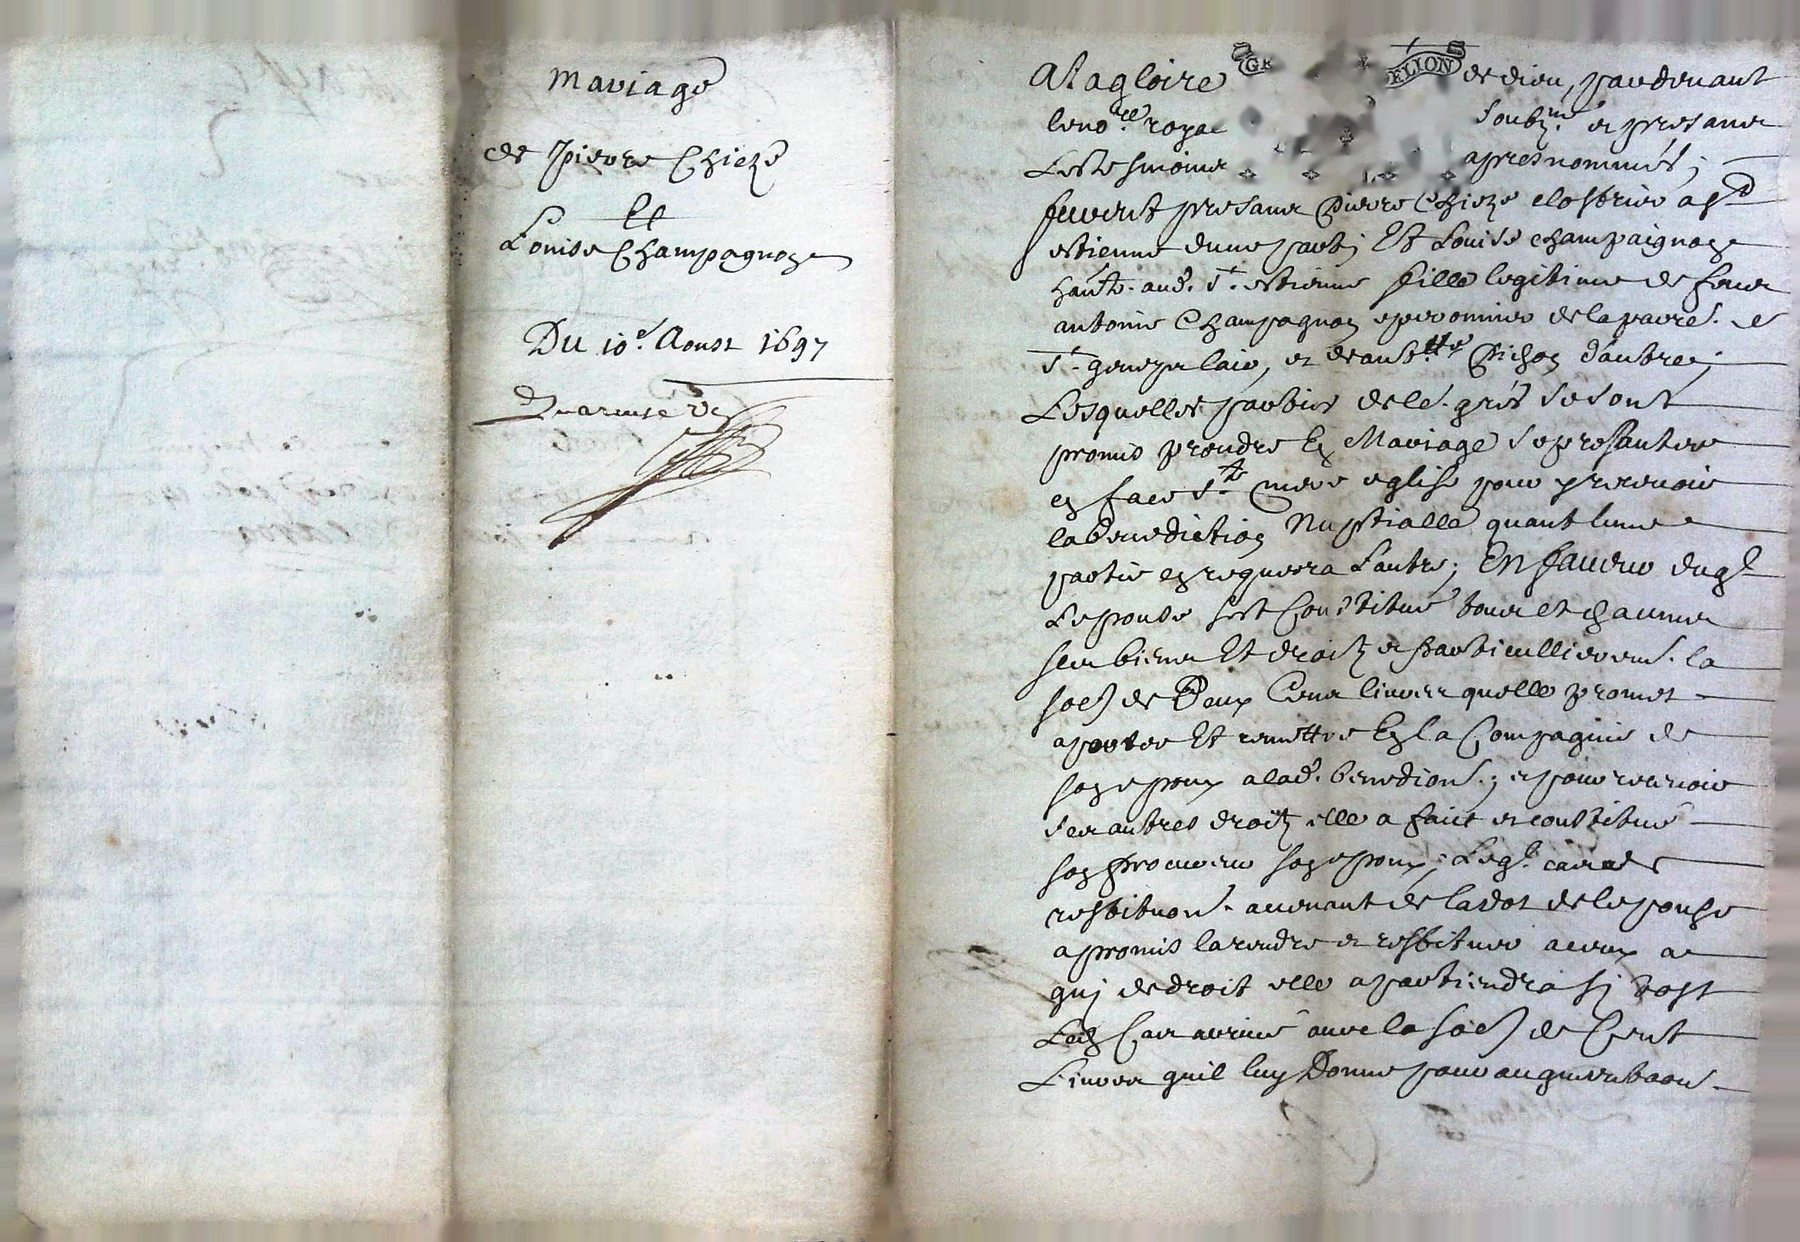 Mariage
de Pierre Chieze
Et
Louise Champagnoze
Du 10e. Aoust 1697
A la gloire de dieu, pardevant
le no.re royal soubz.né et presans
Les tesmoins apres nommés;
furent presans Pierre Chieze closerier a St
estienne d'une part; Et Louise champaignoze
habt. aud. St. estienne fille legitime de feux
antoine Champagnon eperonnier de la parre. de
St. genez lair, et de Pichon d'autre;
Lesquelles parties de le. grés se sont
promis prendre En Mariage se presanter
en face ste mere eglise pour y recevoir
la benediction Nuptialle quant lune
partie en requerra L'autre; En faveur dugl
Lepouse sest Constitué tous et chacuns
ses biens Et droitz et particullierem. la
so.e de Deux Cens livres quelle promet
aporter Et remettre En la Compagnie de
son epoux a lad. benedion.; et pour recevoir
ses autres droitz elle a faict et constitué
son procureur son epoux; Legl. cas de
restituon. avenant de la dot de lepouse
a promis la rendre et restituer a ceux a
qui de droit elle apartiendra si tost
Led Cas arrivé avec la so.e de Cent
Livres quil luy Donne pour augmentaon.
GE ELION